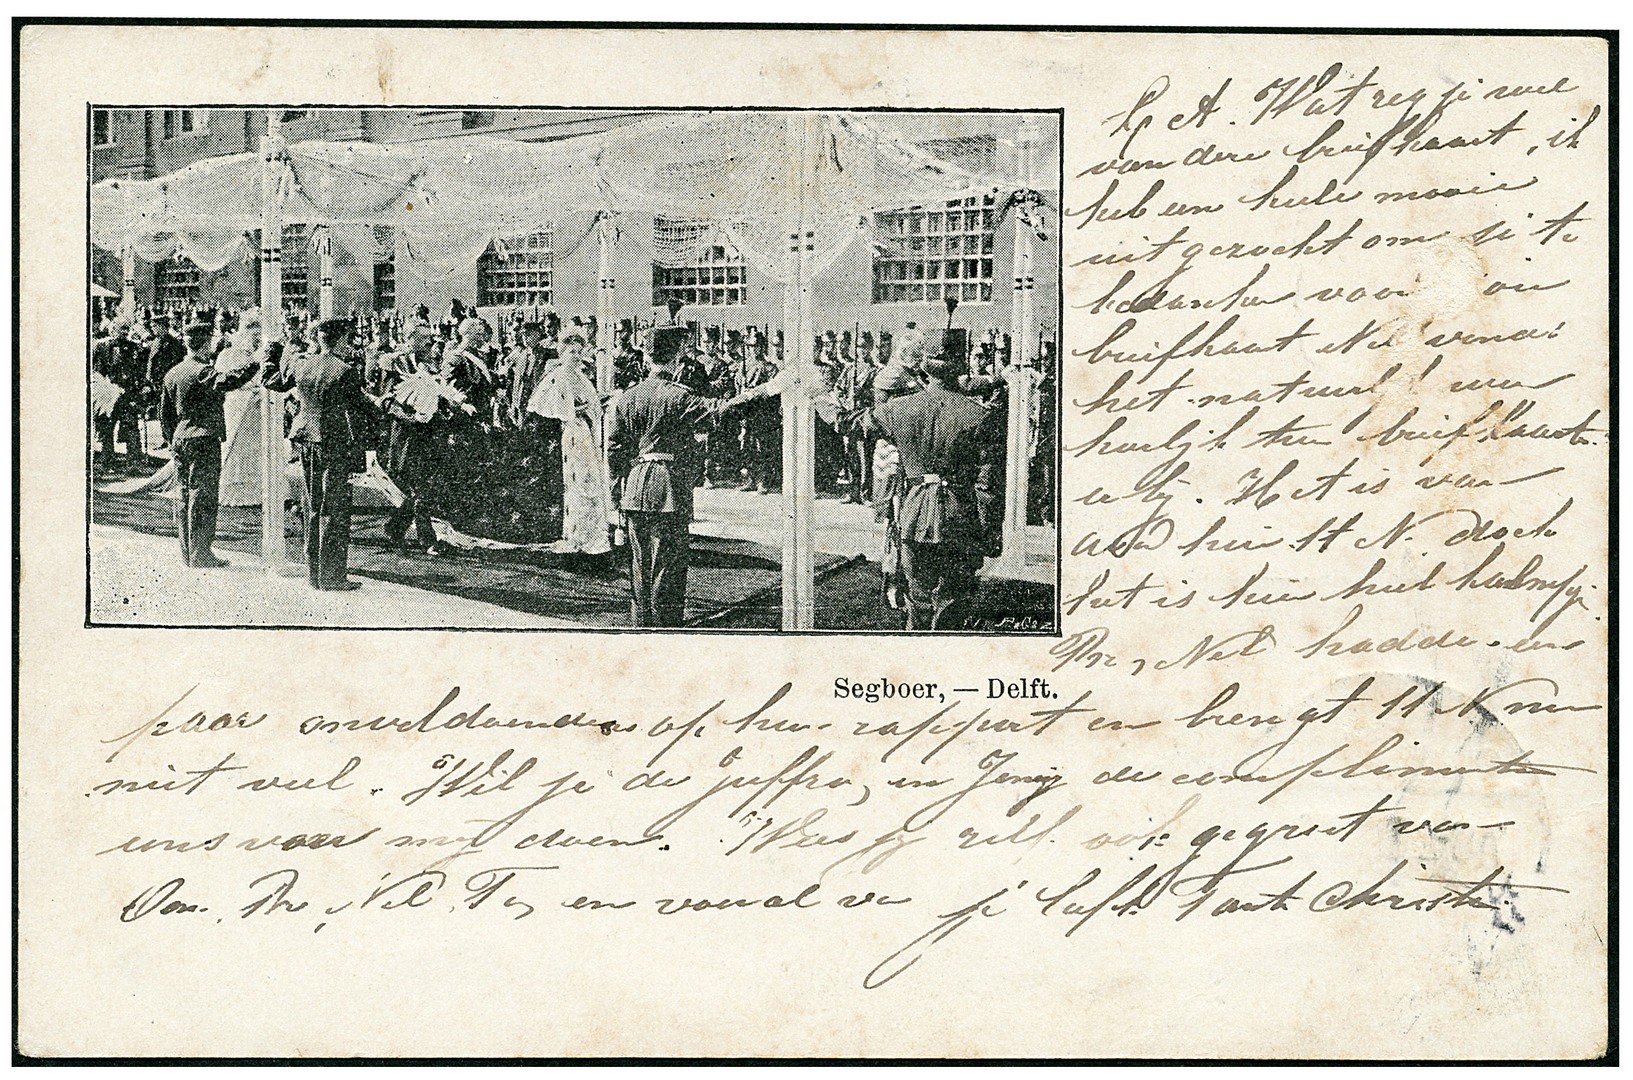 L A. Wat zeg je wel
van deze briefkaart, ik
heb een hele mooie
uitgezocht om je te
bedanken voor
briefkaart Nel vindt
het natuurl!
heerlijk ten briefkaart
er bij. Het is van
hier St N. doch
het is hier heel
Pr, Nel hadde een
Segboer, — Delft.
paar onvoldoendes op hun rapport en brengt St N nu
niet veel. Wil je de Juffr, en Jenij de complimente
eens van mij doen. Wees jij zelf ook gegroet van
Oom, Pr, Nel, To, en vooral va je liefh. Tante Christe.